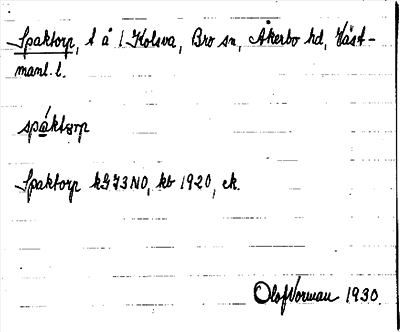 Spaktorp, t å 1 Kolsva, Bro sn, Åkerbo hd, Väst-
manl. l.
Spaktorp kG73NO, kb 1920, ek.
Olof Norman 1930.